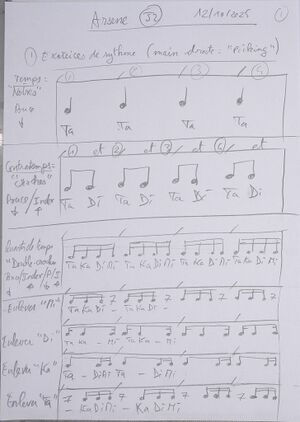 Arsene 52 12/10/2025 1
1 Exercices de rythme (main droite: "Picking")
Temps: 1 / 2 / 3 / 4
"Noires"
Pouce
↓
Ta Ta Ta Ta
Contretemps= 1 et 2 et 3 et 4 et
"Croches"
Pouce/Index
↓ ↑
Ta Di Ta Di Ta Di Ta Di
de temps
"Double-croches
Pouce/Index/P/I
TaKaDiMi TaKaDiMi TaKa DiMi TaKaDi Mi
Enlever "Mi"
Ta Ka Di - TaKaDi -
Enlever "Di"
Ta Ka - Mi TaKa - Mi
Enlever "Ka"
Ta - DiMi Ta - DiMi
Enlever "Ta"
- KaDiMi - KaDiMi